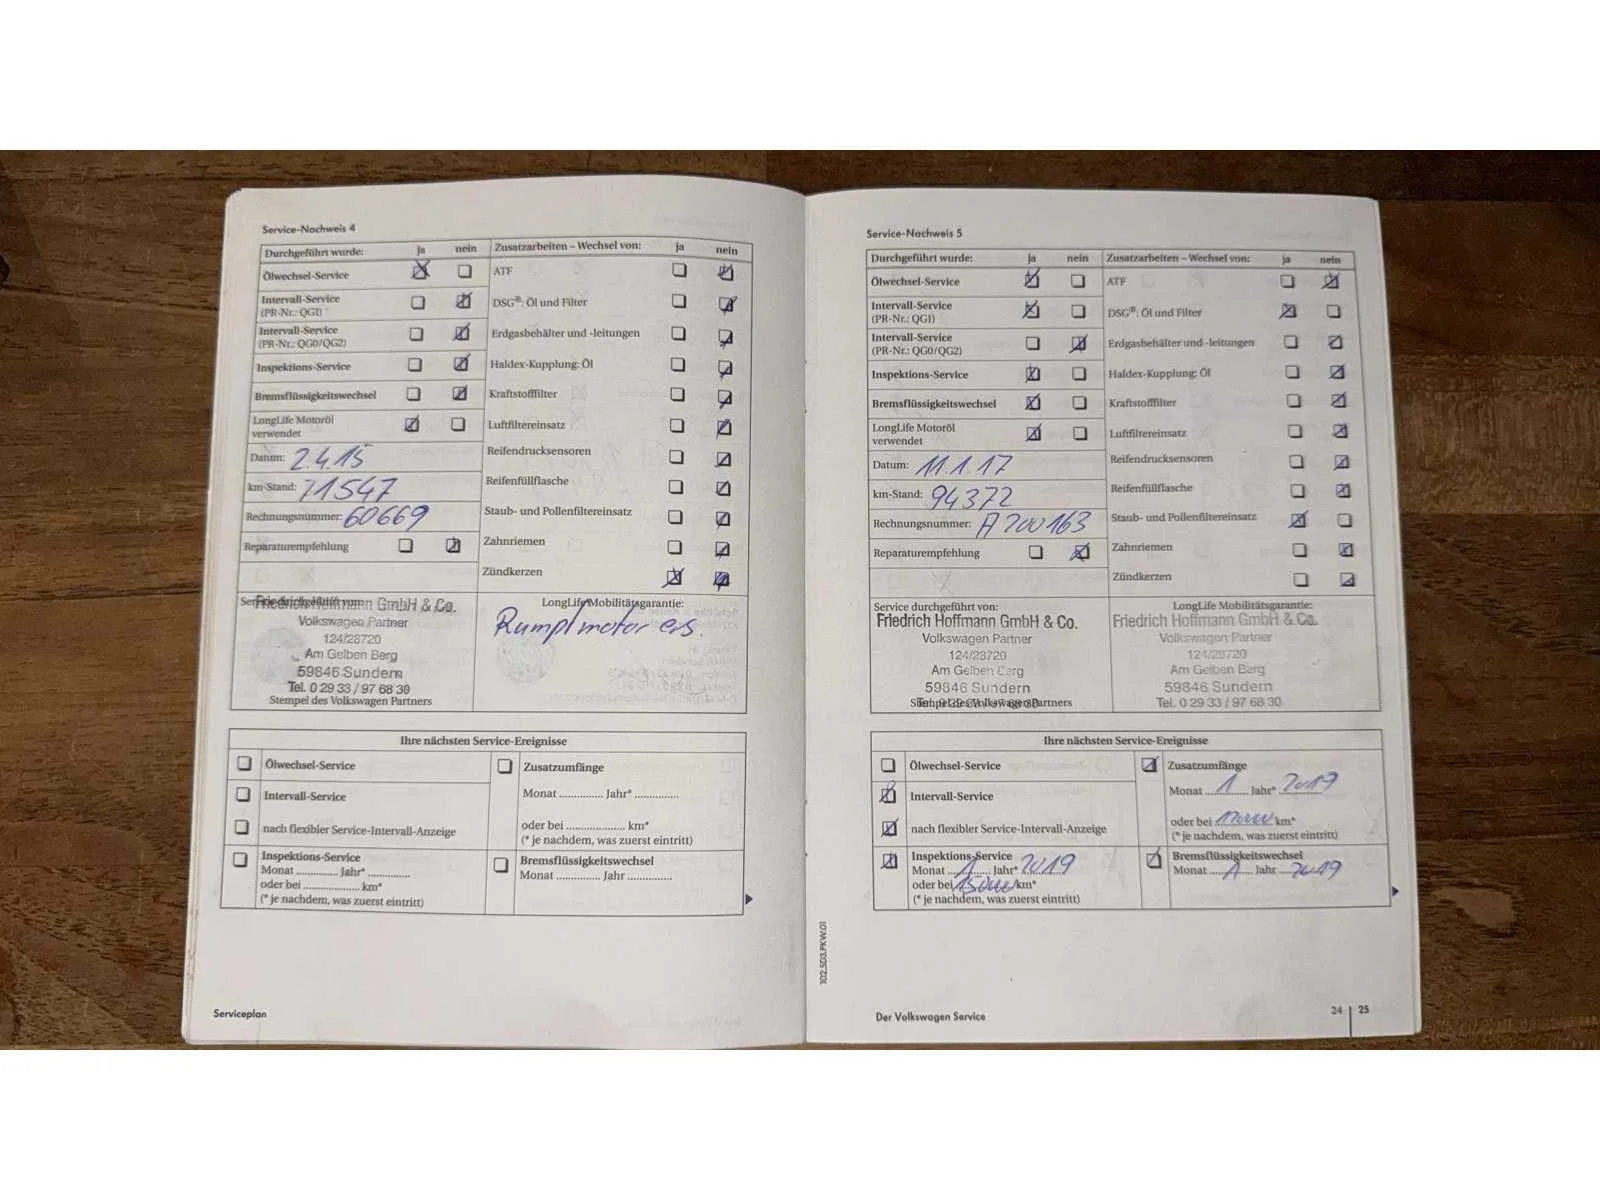 Service-Nachweis 4
Durchgeführt wurde: ja nein
Ölwechsel-Service
Intervall-Service
(PR-Nr.: QG1)
Intervall-Service
(PR-Nr.: QG0/QG2)
Inspektions-Service
Bremsflüssigkeitswechsel
LongLife Motoröl
verwendet
Datum: 2.4.15
km-Stand: 71547
Rechnungsnummer: 60669
Reparaturempfehlung
Zusatzarbeiten – Wechsel von: ja nein
ATF
DSG®: Öl und Filter
Erdgasbehälter und -leitungen
Haldex-Kupplung: Öl
Kraftstofffilter
Luftfiltereinsatz
Reifendrucksensoren
Reifenfüllflasche
Staub- und Pollenfiltereinsatz
Zahnriemen
Zündkerzen
Friedrich Hoffmann GmbH & Co.
Volkswagen Partner
124/28720
Am Gelben Berg
59846 Sundern
Tel. 0 29 33 / 97 68 30
Stempel des Volkswagen Partners
LongLife Mobilitätsgarantie:
Rumpfmotor ers.
Ihre nächsten Service-Ereignisse
Ölwechsel-Service
Intervall-Service
nach flexibler Service-Intervall-Anzeige
Inspektions-Service
Monat ............ Jahr* ............
oder bei ................ km*
(* je nachdem, was zuerst eintritt)
Zusatzumfänge
Monat ............ Jahr* ............
oder bei ................ km*
(* je nachdem, was zuerst eintritt)
Bremsflüssigkeitswechsel
Monat ............ Jahr ............
Serviceplan
Service-Nachweis 5
Durchgeführt wurde: ja nein
Ölwechsel-Service
Intervall-Service
(PR-Nr.: QG1)
Intervall-Service
(PR-Nr.: QG0/QG2)
Inspektions-Service
Bremsflüssigkeitswechsel
LongLife Motoröl
verwendet
Datum: 11.1.17
km-Stand: 94372
Rechnungsnummer: A200163
Reparaturempfehlung
Zusatzarbeiten – Wechsel von: ja nein
ATF
DSG®: Öl und Filter
Erdgasbehälter und -leitungen
Haldex-Kupplung: Öl
Kraftstofffilter
Luftfiltereinsatz
Reifendrucksensoren
Reifenfüllflasche
Staub- und Pollenfiltereinsatz
Zahnriemen
Zündkerzen
Service durchgeführt von:
Friedrich Hoffmann GmbH & Co.
Volkswagen Partner
124/28720
Am Gelben Berg
59846 Sundern
Stempel des Volkswagen Partners
LongLife Mobilitätsgarantie:
Friedrich Hoffmann GmbH & Co.
Volkswagen Partner
124/28720
Am Gelben Berg
59846 Sundern
Tel. 0 29 33 / 97 68 30
Ihre nächsten Service-Ereignisse
Ölwechsel-Service
Intervall-Service
nach flexibler Service-Intervall-Anzeige
Inspektions-Service
Monat 1 Jahr* 2019
oder bei km*
(* je nachdem, was zuerst eintritt)
Zusatzumfänge
Monat 1 Jahr* 2019
oder bei km*
(* je nachdem, was zuerst eintritt)
Bremsflüssigkeitswechsel
Monat 1 Jahr 2019
102.5D3.PKW.01
Der Volkswagen Service
24 | 25